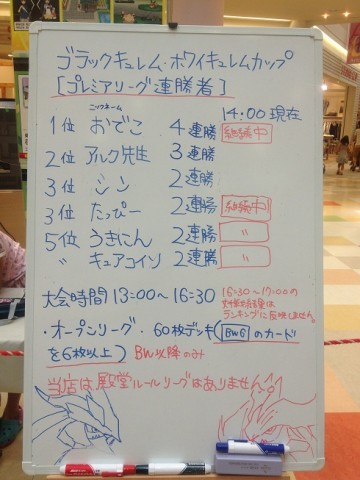 ブラックキュレム・ホワイトキュレムカップ
[プレミアリーグ連勝者]
ニックネーム
14:00 現在
1位 おでこ 4連勝 継続中
2位 アルク先生 3連勝
3位 シン 2連勝
3位 たっぴー 2連勝 継続中
5位 うきにん 2連勝 〃
〃 キュアコイソ 2連勝 〃
大会時間 13:00〜16:30
16:30〜17:00の
対戦結果は
ランキングに反映しません。
・オープンリーグ・60枚デッキ(BW6のカード
を6枚以上) BW以降のみ
当店は殿堂ルールリーグはありません。